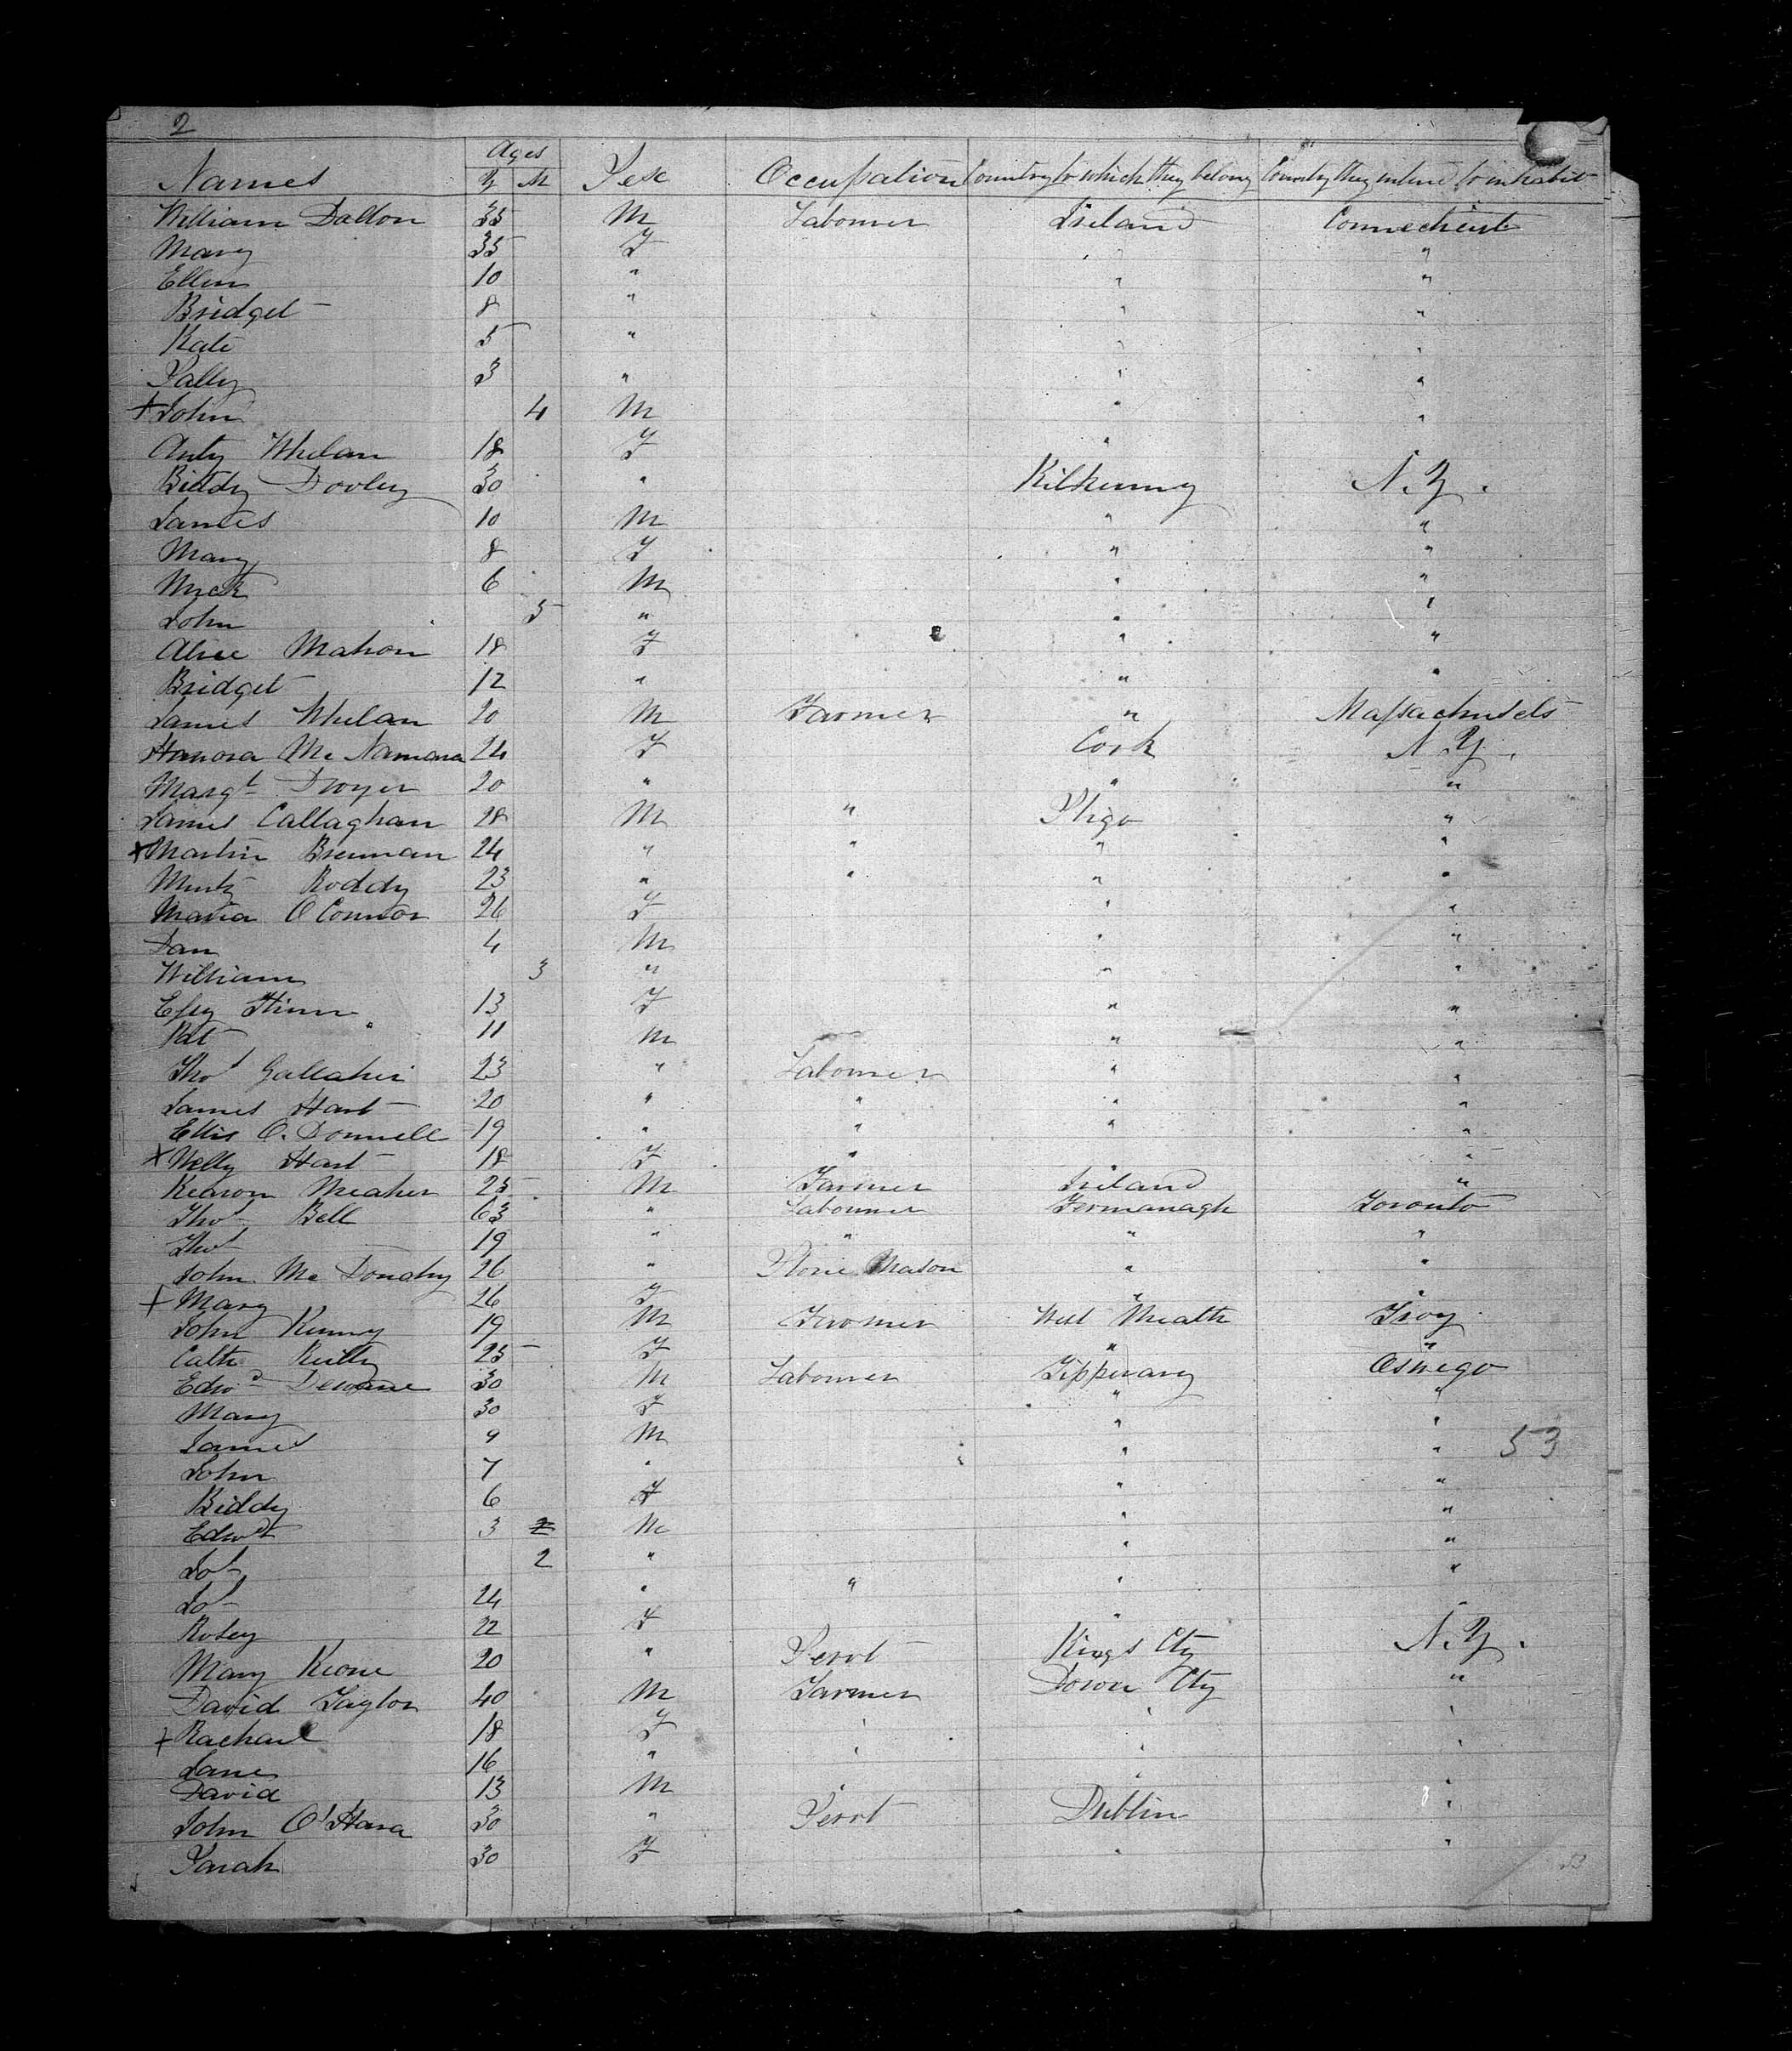 2
Names Ages Y M Sex Occupation Country to which they belong Country they intend to inhabit
William Dalton 35 M Labourer Ireland Connecticut
Mary 35 F " "
Ellen 10 " " "
Bridget 8 " " "
Kate 5 " " "
Sally 3 " " "
+ John 4 M " "
Anty Whelan 18 F "
Biddy Dooley 30 " Kilkenny N.Y.
James 10 M " "
Mary 8 F " "
Mick 6 M " "
John 5 " " "
Alice Mahon 18 F " "
Bridget 12 " " "
James Whelan 20 M Farmer " Massachusets
Hanora Mc Namara 24 F Cork N.Y.
Margt Dwyer 20 " " "
James Callaghan 28 M " Sligo "
+ Martin Brennan 24 " " " "
Roddy 23 " " " "
Maria O Connor 26 F " "
Dan 4 M " "
William 3 " " "
Essy 13 F " "
Pat 11 M " "
Thos Gallaher 23 " Labourer " "
James Hart 20 " " " "
Ellis O. Donnell 19 " " " "
+ Nelly Hart 18 F " " "
Kearon Meaher 25 M Farmer Ireland "
Thos Bell 63 " Labourer Fermanagh Toronto
Thos 19 " " " "
John Mc Donahy 26 " Stone Mason " "
+ Mary 26 F " "
John Kenny 19 M Farmer West Meath Troy
Cathe Reilly 25 F " "
Edwd 30 M Labourer Tipperary Oswego
Mary 30 F " "
James 9 M " "
53
John 7 " " "
Biddy 6 F " "
Edwd 3 2 M " "
Jos 2 " " "
Jos 24 " " " "
Rosey 22 F "
Mary Keone 20 " Servt Kings Cty N.Y.
David Taylor 40 M Farmer Down Cty "
+ Rachael 18 F " " "
Jane 16 " " " "
David 13 M " " "
John O'Hara 30 " Servt Dublin "
Sarah 30 F " "
53